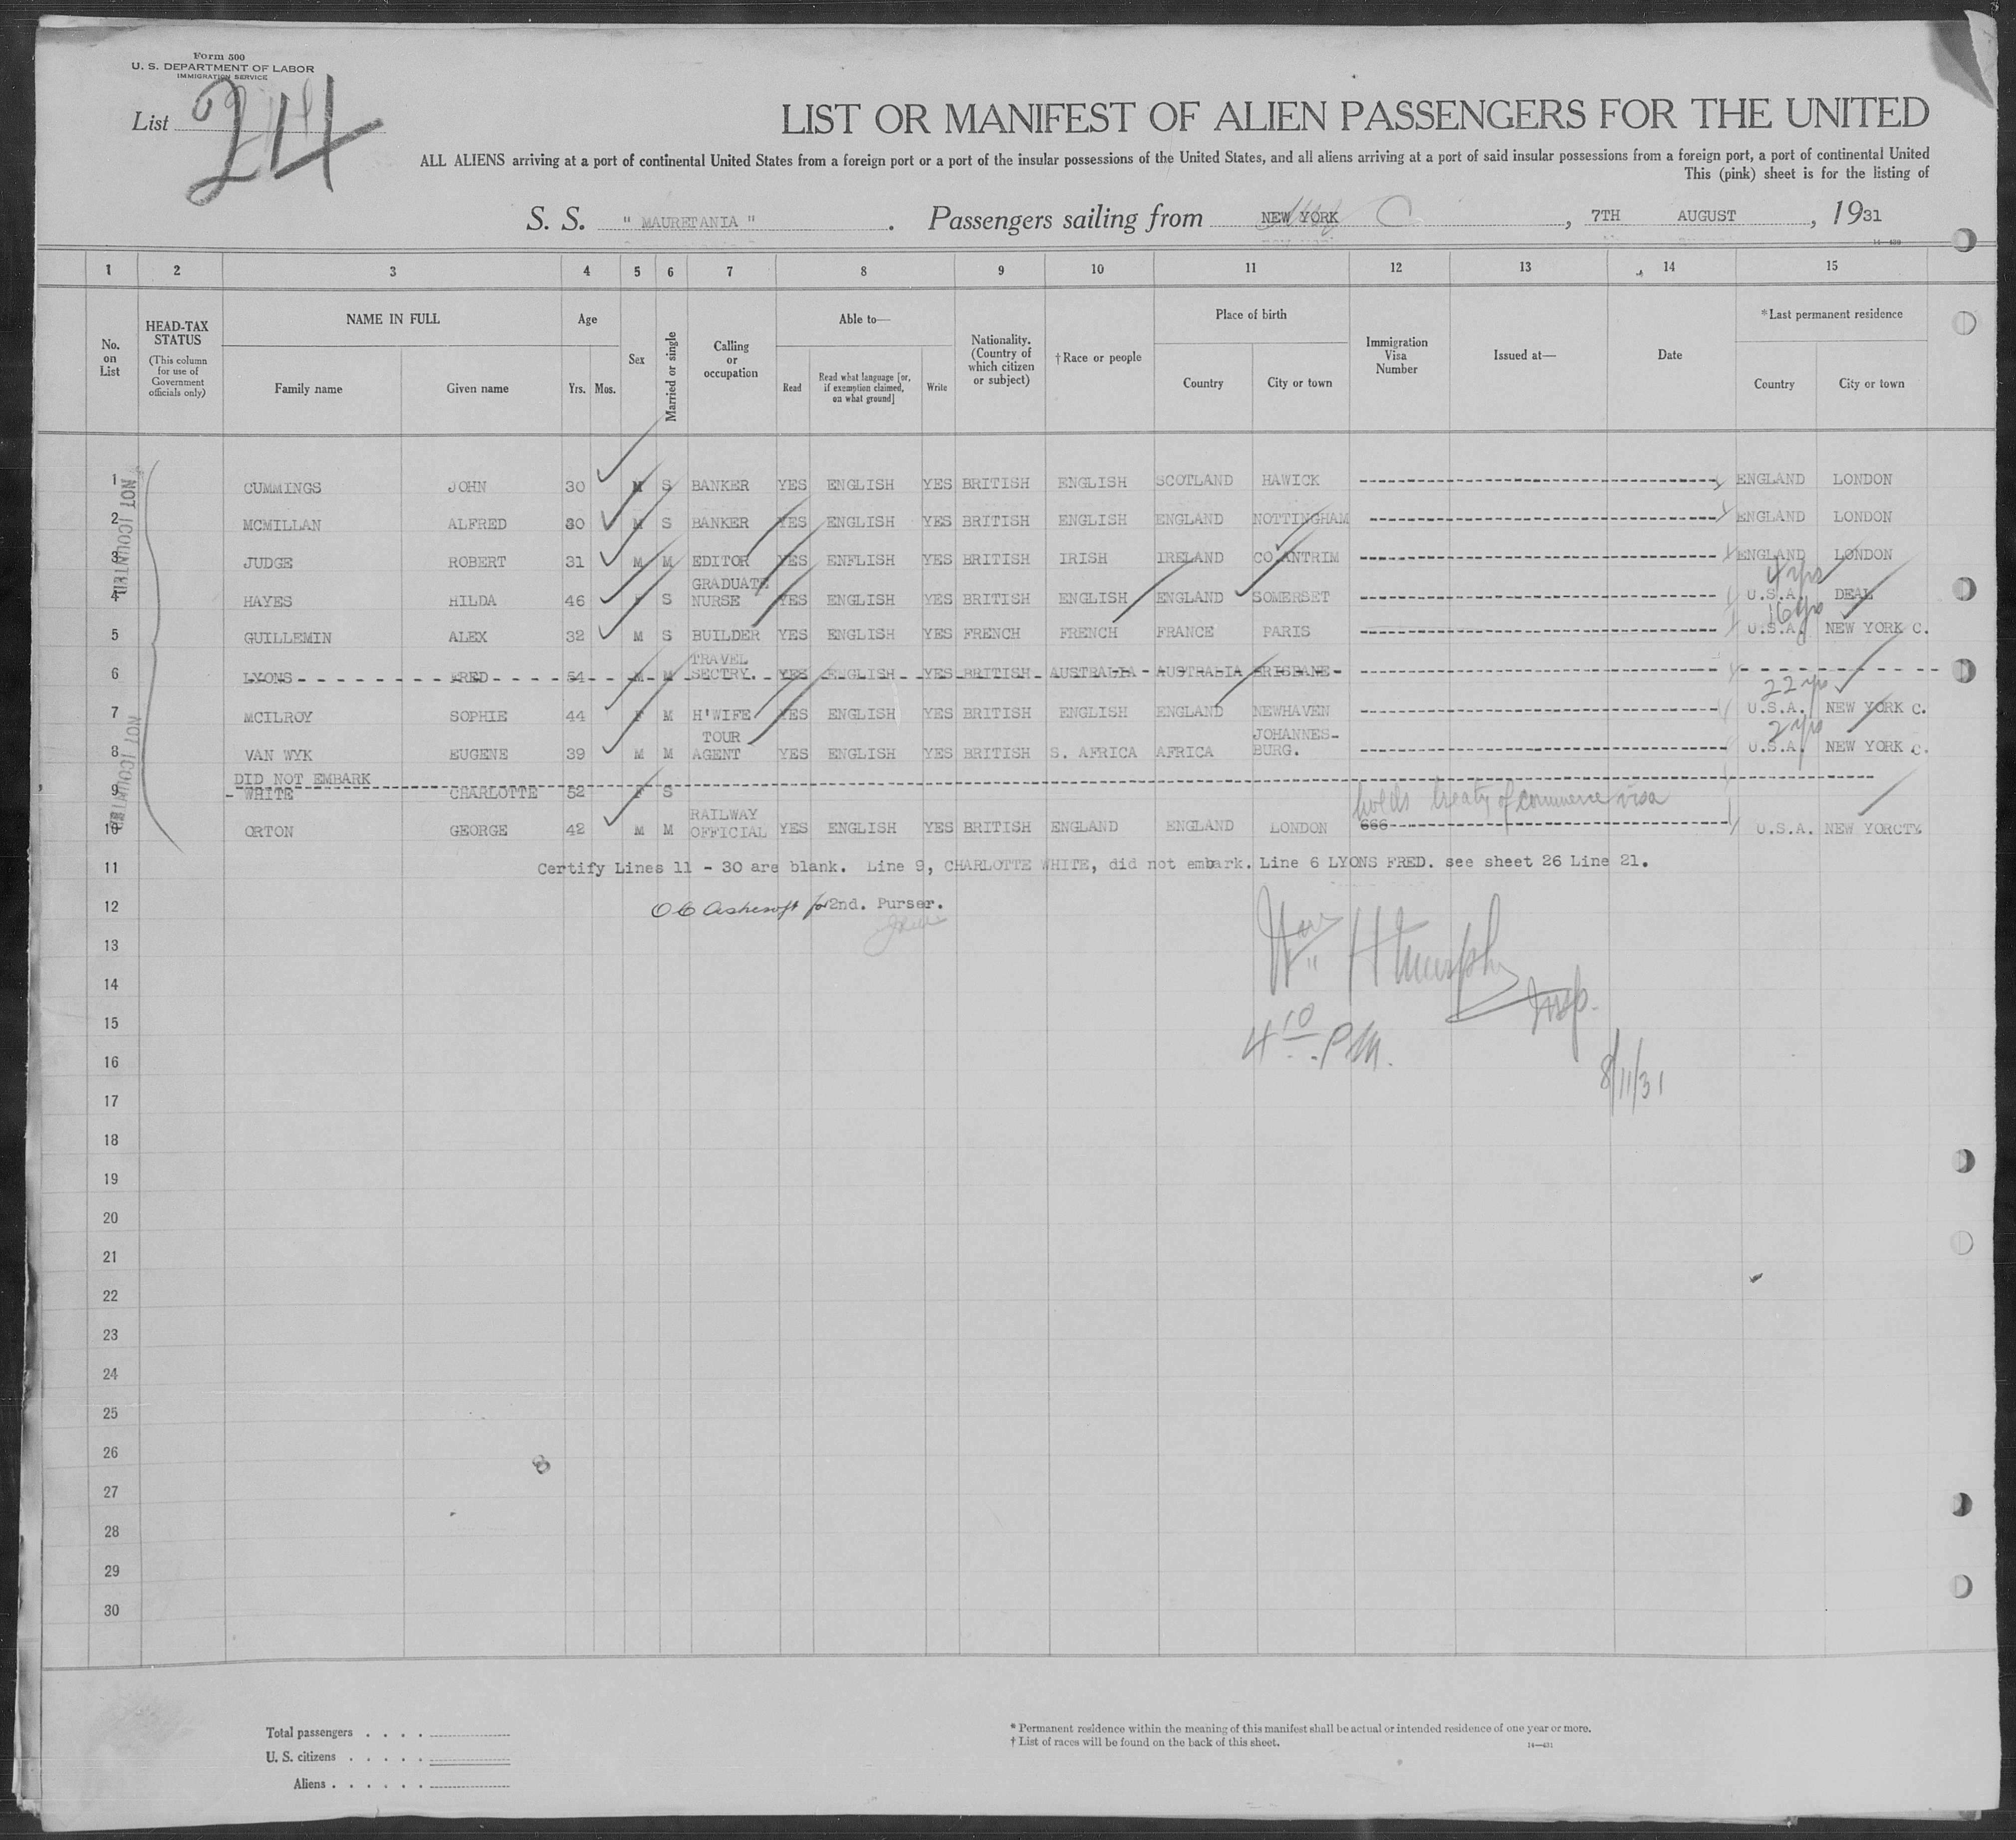 Form 500
U. S. DEPARTMENT OF LABOR
IMMIGRATION SERVICE
List 24
LIST OR MANIFEST OF ALIEN PASSENGERS FOR THE UNITED
ALL ALIENS arriving at a port of continental United States from a foreign port or a port of the insular possessions of the United States, and all aliens arriving at a port of said insular possessions from a foreign port, a port of continental United
This (pink) sheet is for the listing of
S. S. " MAURETANIA " . Passengers sailing from NEW YORK , 7TH AUGUST , 1931
14—430
1 2 3 4 5 6 7 8 9 10 11 12 13 14 15
No. on List
HEAD-TAX STATUS
(This column for use of Government officials only)
NAME IN FULL
Family name Given name
Age
Yrs. Mos.
Sex
Married or single
Calling or occupation
Able to—
Read Read what language [or, if exemption claimed, on what ground] Write
Nationality. (Country of which citizen or subject)
†Race or people
Place of birth
Country City or town
Immigration Visa Number
Issued at—
Date
*Last permanent residence
Country City or town
NOT COUNTED
1 CUMMINGS JOHN 30 M S BANKER YES ENGLISH YES BRITISH ENGLISH SCOTLAND HAWICK ENGLAND LONDON
2 MCMILLAN ALFRED 30 M S BANKER YES ENGLISH YES BRITISH ENGLISH ENGLAND NOTTINGHAM ENGLAND LONDON
3 JUDGE ROBERT 31 M M EDITOR YES ENFLISH YES BRITISH IRISH IRELAND CO ANTRIM ENGLAND LONDON
4 yrs
4 HAYES HILDA 46 F S GRADUATE NURSE YES ENGLISH YES BRITISH ENGLISH ENGLAND SOMERSET U.S.A. DEAL
16 yrs
5 GUILLEMIN ALEX 32 M S BUILDER YES ENGLISH YES FRENCH FRENCH FRANCE PARIS U.S.A. NEW YORK C.
6 LYONS FRED 54 M M TRAVEL SECTRY. YES ENGLISH YES BRITISH AUSTRALIA AUSTRALIA BRISBANE
22 yrs
7 MCILROY SOPHIE 44 F M H'WIFE YES ENGLISH YES BRITISH ENGLISH ENGLAND NEWHAVEN U.S.A. NEW YORK C.
2 yrs
8 VAN WYK EUGENE 39 M M TOUR AGENT YES ENGLISH YES BRITISH S. AFRICA AFRICA JOHANNES-BURG. U.S.A. NEW YORK C.
DID NOT EMBARK
9 WHITE CHARLOTTE 52 F S
holds treaty of commerce visa
10 ORTON GEORGE 42 M M RAILWAY OFFICIAL YES ENGLISH YES BRITISH ENGLAND ENGLAND LONDON 666 U.S.A. NEW YORCTY
NOT COUNTED
11 Certify Lines 11 - 30 are blank. Line 9, CHARLOTTE WHITE, did not embark. Line 6 LYONS FRED. see sheet 26 Line 21.
12 for 2nd. Purser.
13
Wm H Murphy
14
Insp.
15
4 10 P.M.
16
8/11/31
17
18
19
20
21
22
23
24
25
26
27
28
29
30
Total passengers . . . .
U. S. citizens . . . . .
Aliens . . . . . .
* Permanent residence within the meaning of this manifest shall be actual or intended residence of one year or more.
† List of races will be found on the back of this sheet.
14—431